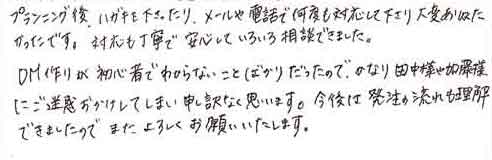 プランニング後、ハガキを下さったり、メールや電話で何度も対応して下さり大変ありがた
かったです。対応も丁寧で安心していろいろ相談できました。
DM作りが初心者でわからないことばかりだったので、かなり田中様や加藤様
にご迷惑おかけしてしまい申し訳なく思います。今後は発注の流れも理解
できましたので またよろしくお願いいたします。